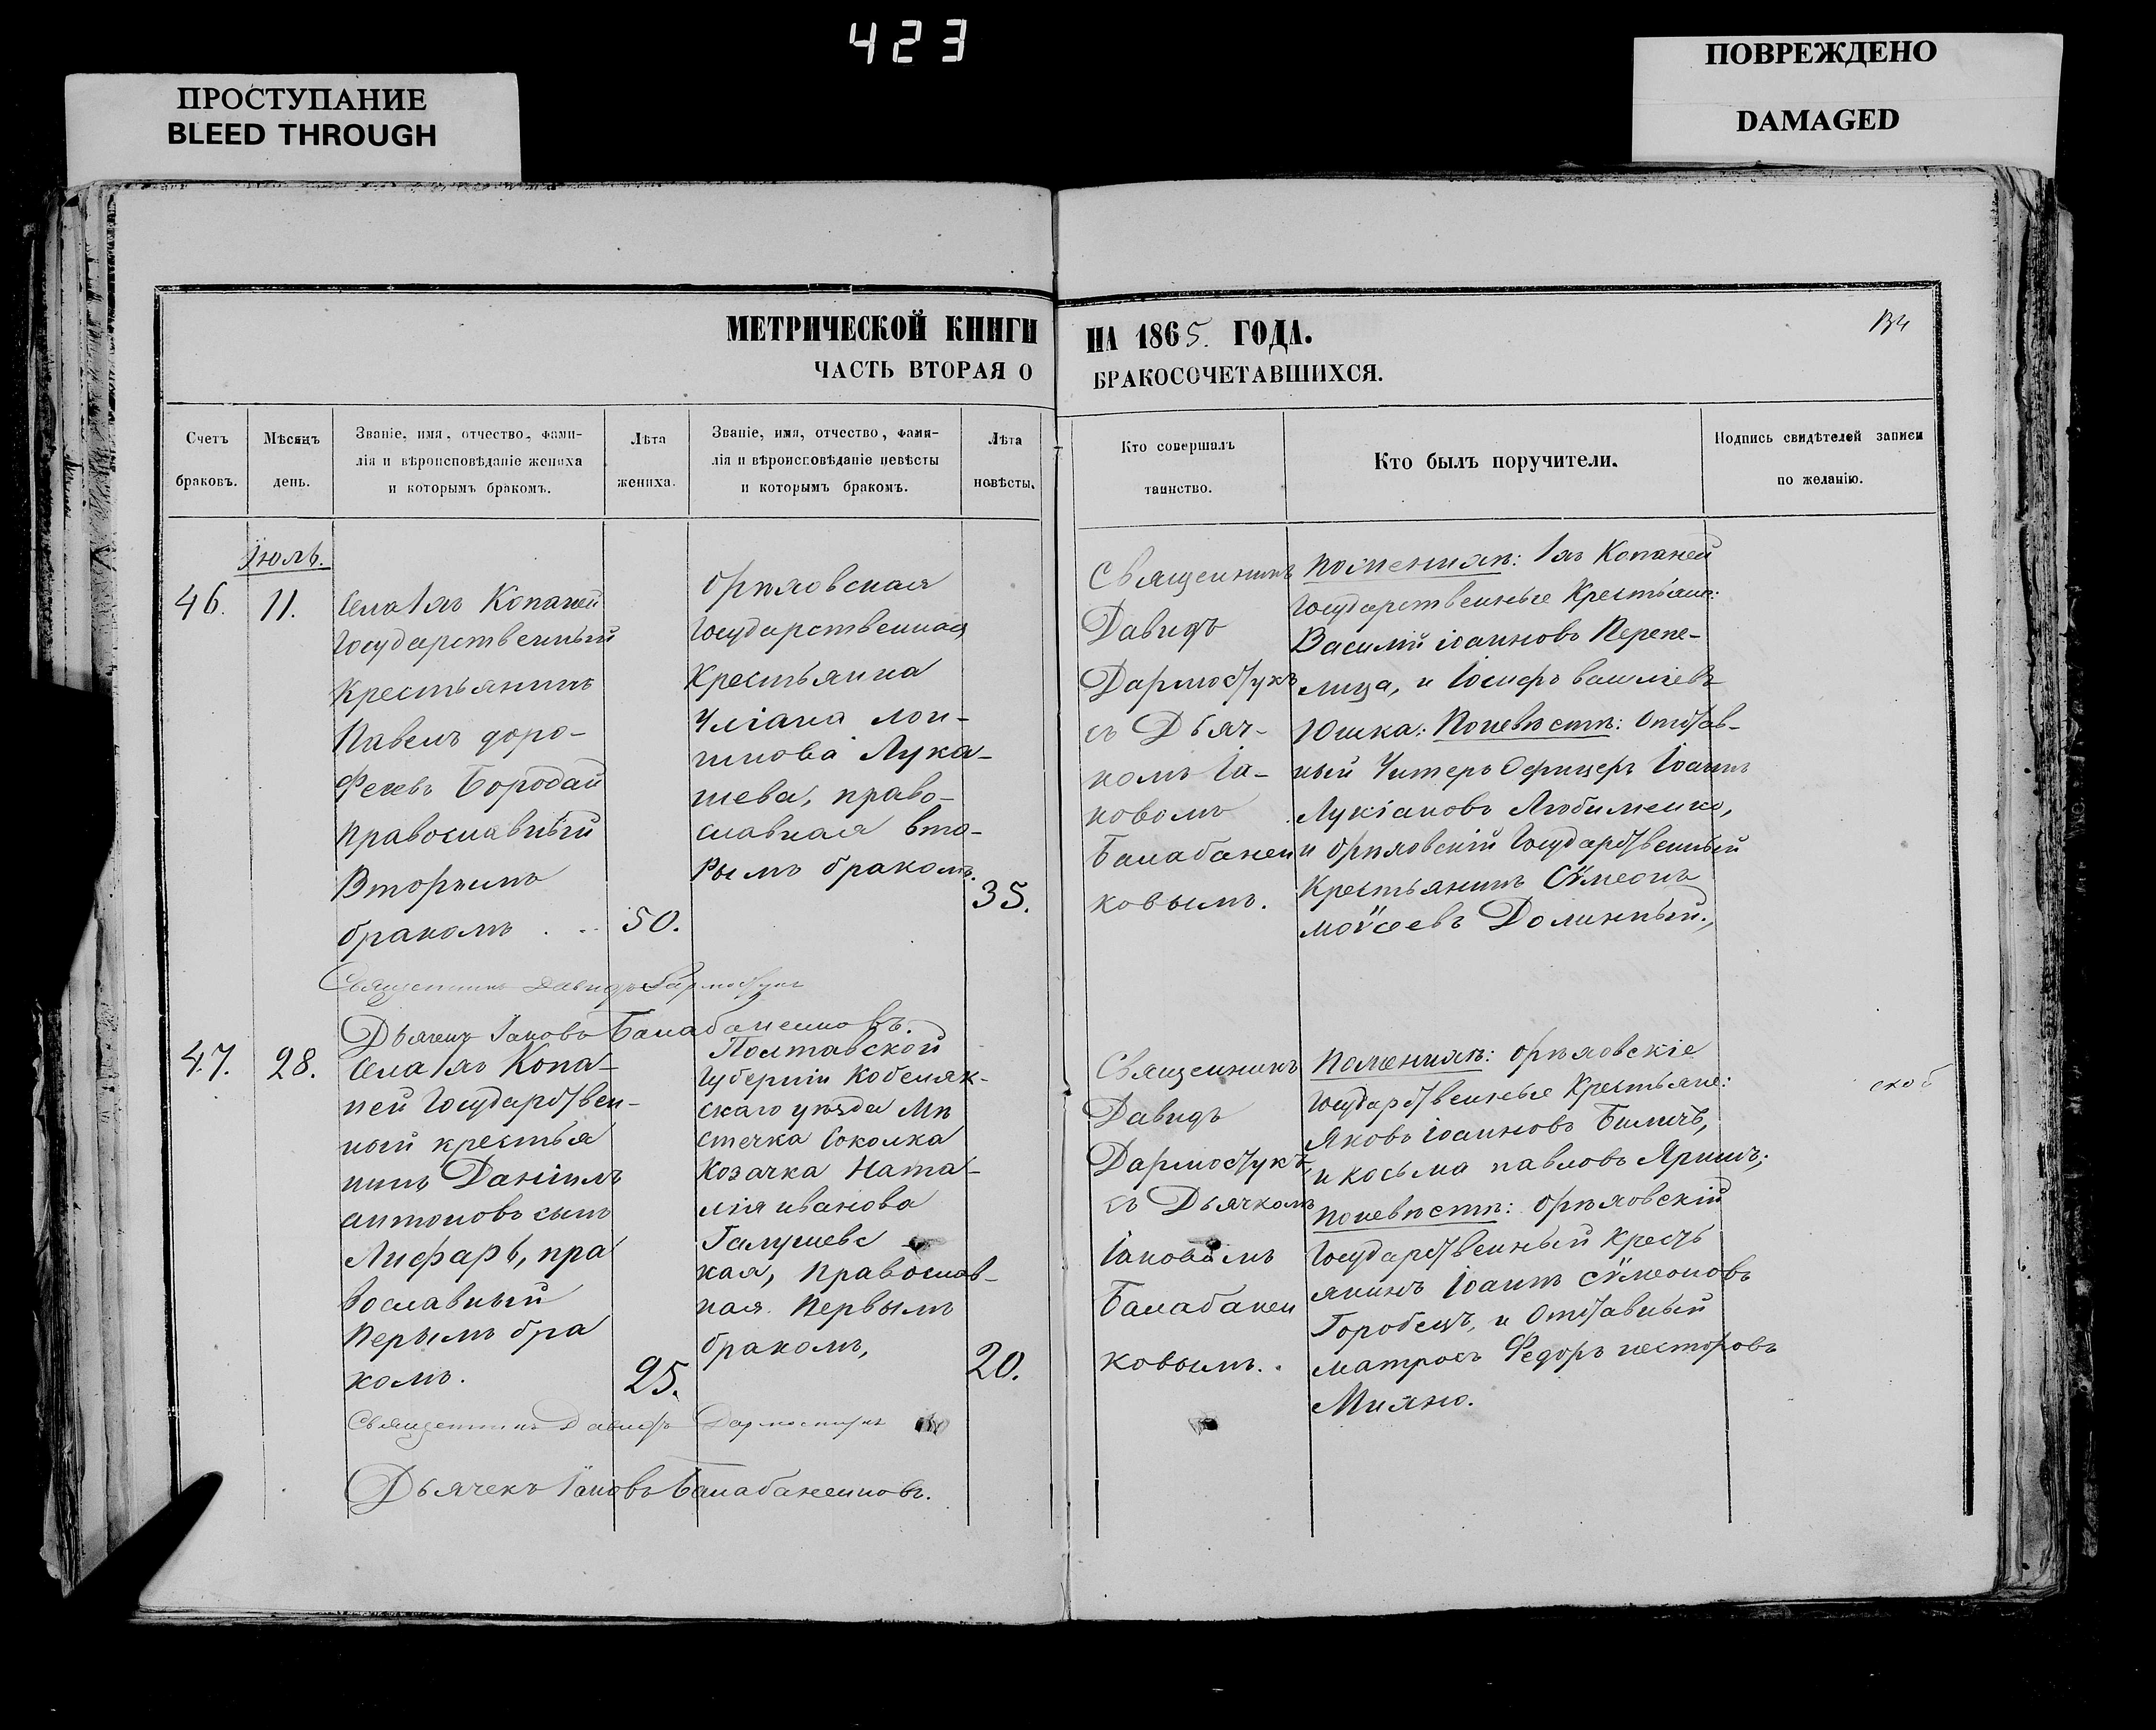 423
ПРОСТУПАНИЕ
BLEED THROUGH
ПОВРЕЖДЕНО
DAMAGED
МЕТРИЧЕСКОЙ КНИГИ НА 1865. ГОДА.
ЧАСТЬ ВТОРАЯ О БРАКОСОЧЕТАВШИХСЯ.
Счетъ
браковъ.
Мѣсяцъ
день.
Званіе, имя, отчество, фами-
лія и вѣроисповѣданіе жениха
и которымъ бракомъ.
Лѣта
жениха.
Званіе, имя, отчество, фами-
лія и вѣроисповѣданіе невѣсты
и которымъ бракомъ.
Лѣта
невѣсты.
Кто совершалъ
таинство.
Кто былъ поручители.
Подпись свидѣтелей записи
по желанію.
Іюль.
46.
11.
Села Копаней
Государственный
Крестьянинъ
Павелъ доро-
феевъ Бородай
православный
Вторымъ
бракомъ . .
50.
Орѣловская
Государственная
Крестьянка
Уліана лон-
гинова Лука-
шева, право-
славная вто-
рымъ бракомъ.
35.
Священникъ
Давидъ
Дармостукъ
съ Дьяч-
комъ Іа-
ковомъ
Балабанен
ковымъ.
По женихѣ: Копаней
Государственные Крестьяне:
Василій іоанновъ Перепе-
лица, и Іосифъ василіевъ
Юшка: По невѣстѣ: Отстав-
ный Унтеръ Офицеръ Іоаннъ
Лукіановъ Любименко,
и орѣловскій Государственный
Крестьянинъ Сѵмеонъ
моѵсеевъ Долинный.,
Священникъ Давидъ Дармостукъ
Дьячекъ Іаковъ Балабаненковъ.
47.
28.
Села Копа-
ней Государствен-
ный крестья
нинъ Даніилъ
антоновъ сынъ
Лифарь, пра
вославный
Перымъ бра
комъ.
25.
Полтавской
Губерніи Кобеляк-
скаго уѣзда Мѣ
стечка Соколка
Козачка Ната-
лія иванова
Галушевс
кая, Православ-
ная Первымъ
бракомъ,
20.
Священникъ
Давидъ
Дармостукъ
съ Дьячкомъ
Іаковомъ
Балабанен
ковымъ.
По женихѣ: орѣловскіе
Государственные Крестьяне:
Яковъ іоанновъ Биличъ,
и косьма павловъ Яришъ;
По невѣстѣ: орѣловскій
Государственный Кресть
янинъ Іоаннъ сѵмеоновъ
Горобецъ, и Отставный
матросъ Федоръ несторовъ
Священникъ Давидъ Дармостукъ
Дьячекъ Іаковъ Балабаненковъ.